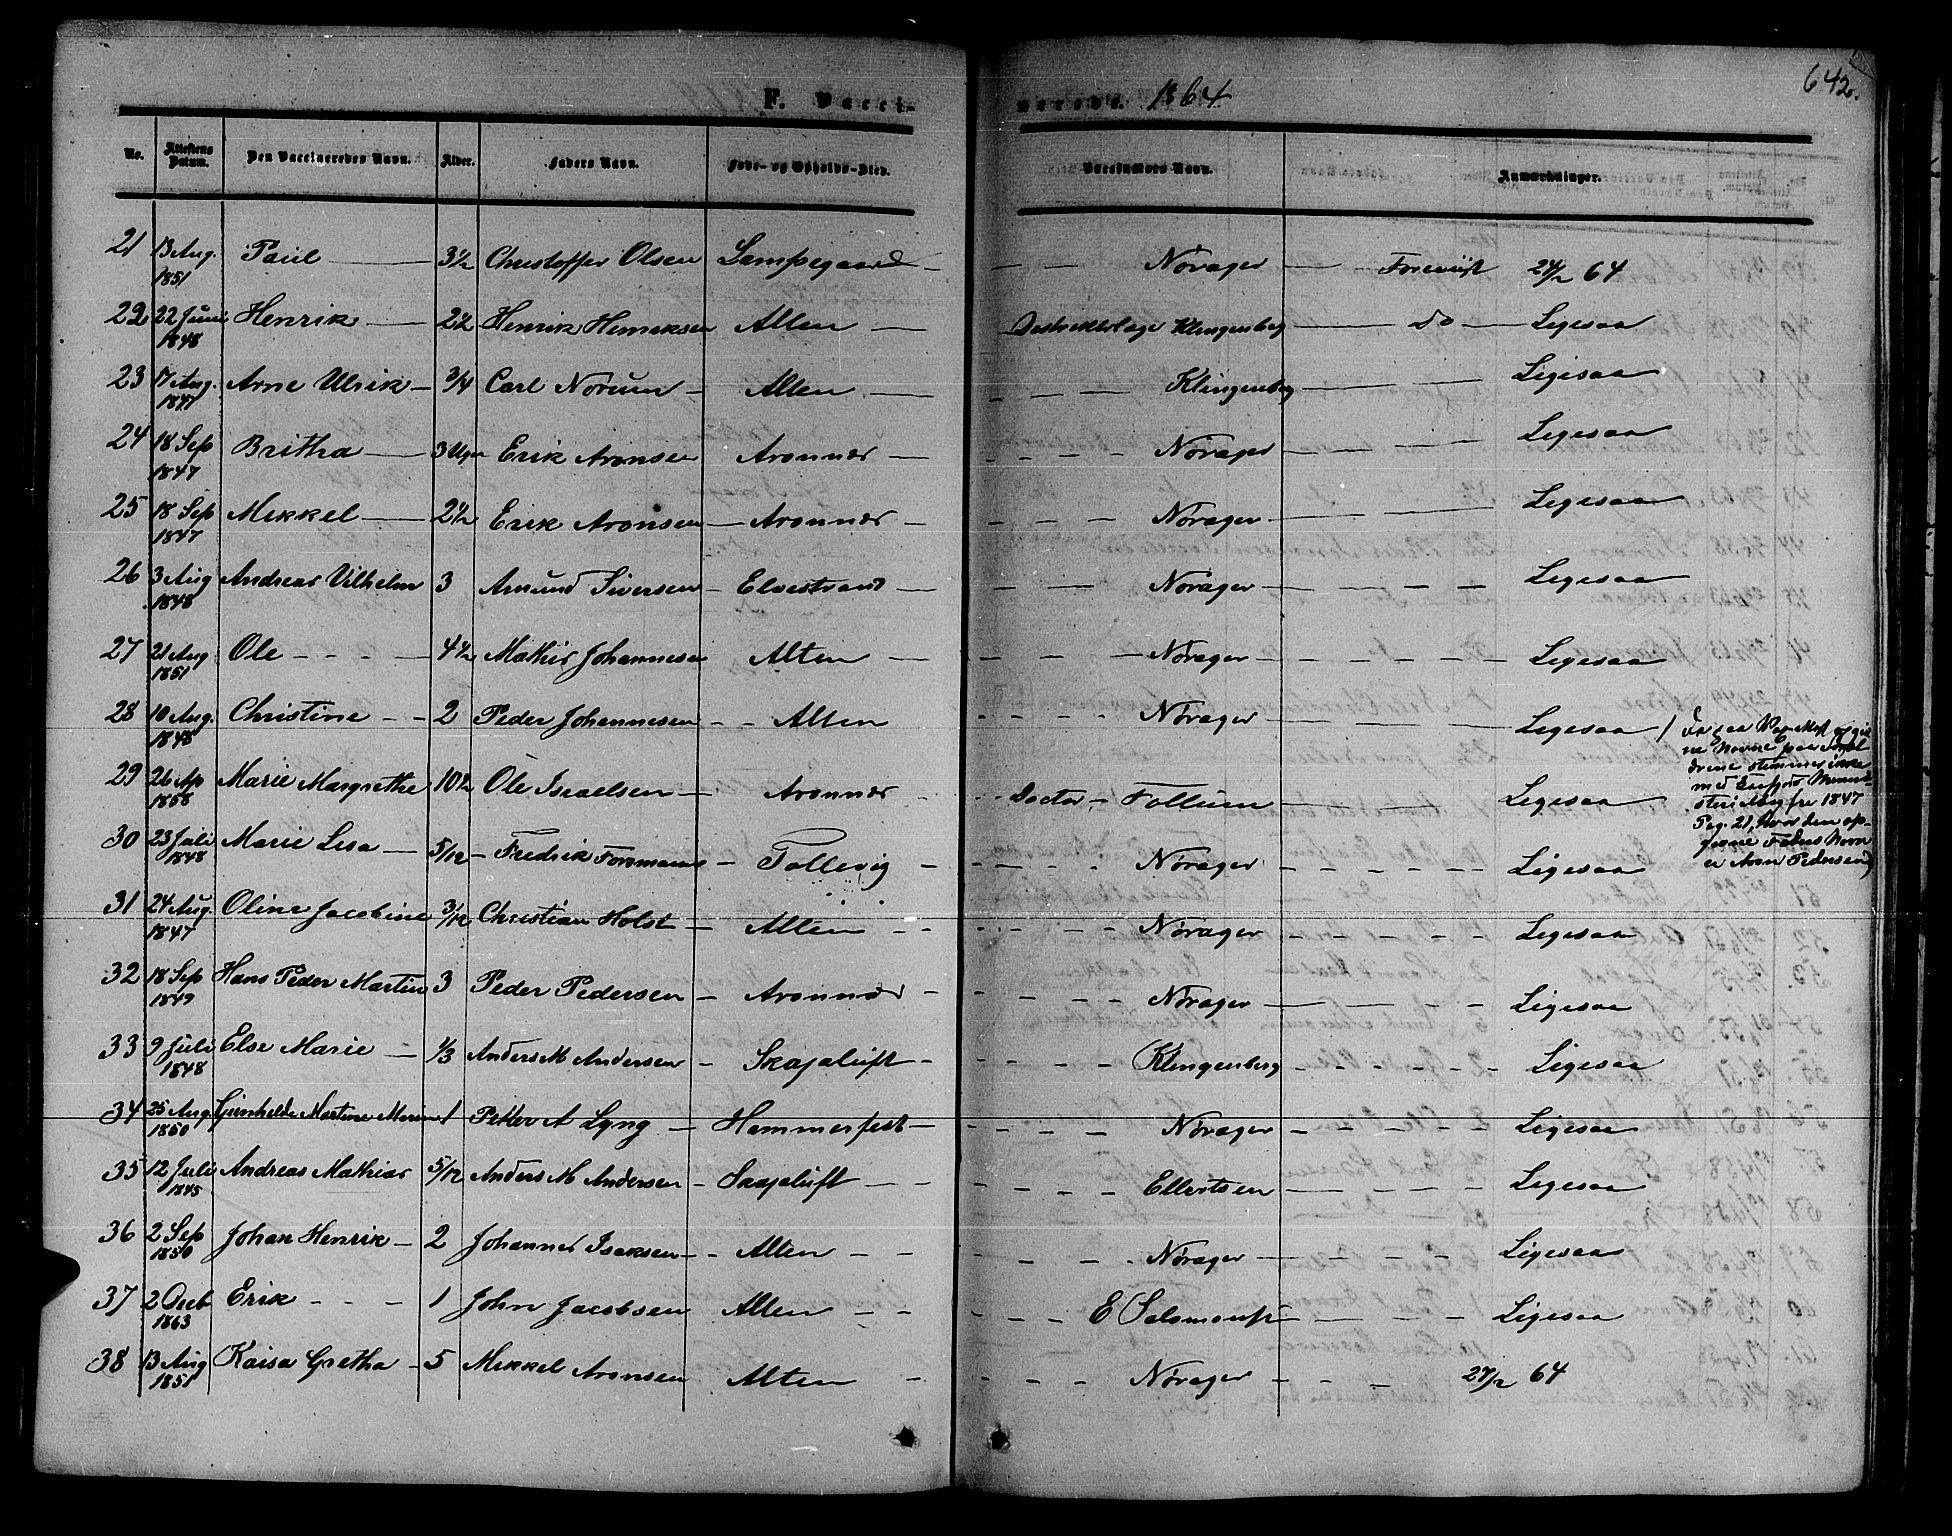 642.
F. Vacci- nerede. 1864
No. Attestens Datum. Den Vaccineredes Navn. Alder. Faders Navn. Føde- og Opholds-Sted. Vaccinators Navn. Anmærkninger.
21 13 Aug. 1851 Paul — 3½ Christoffer Olsen Lampegaard - - - Nørager — Foreviist 24/2 64
22 22 Juni 1848 Henrik — 2½ Henrik Henriksen Alten — Distriktslæge Klingenberg — do — Ligesaa
23 17 Aug. 1847 Arne Ulrik - 3/4 Carl Norum - Alten — Klingenberg — Ligesaa
24 18 Sep 1847 Britha — 3 Uger Erik Aronsen Aronnæs — Nørager — Ligesaa
25 18 Sep 1847 Mikkel — 2½ Erik Aronsen — Aronnæs - Nørager — Ligesaa
26 3 Aug 1848 Andreas Vilhelm 3 Amund Siversen - Elvestrand — Nørager — Ligesaa
27 21 Aug 1851 Ole - - - 4½ Mathis Johannesen Alten — Nørager - Ligesaa
28 10 Aug. 1848 Christine - - 2 Peder Johannesen - - Alten Nørager — Ligesaa
29 26 Ap 1858 Marie Margrethe 10½ Ole Israelsen — Aronnæs - Doctor - Follum — Ligesaa
30 23 Juli 1848 Marie Lisa — 5/12 - Fredrik Forsmann Tallevig - Nørager - Ligesaa
31 24 Aug. 1847 Oline Jacobine 3/12 Christian Holst - Alten - - Nørager - Ligesaa
32 18 Sep 1849 Hans Peder Martin 3 Peder Pedersen - Aronnæs - Nørager — Ligesaa
33 9 Juli 1848 Else Marie — 1/3 Anders M Andersen - Skajaluft - Klingenberg — Ligesaa
34 25 Aug. 1850 Gunhilde Martine Marie 1 Petter A Lyng — Hammerfest - Nørager - Ligesaa
35 12 Juli 1845 Andreas Mathias 5/12 Anders M Andersen - Skajaluft - - Ellertsen — Ligesaa
36 2 Sep 1850 Johan Henrik - 2 Johannes Isaksen - - Alten - - Nørager — Ligesaa
37 2 Decb 1863 Erik - - - 1 John Jacobsen Alten - - E Salomonsen — Ligesaa
38 13 Aug 1851 Kaisa Gretha - 5 Mikkel Aronsen Alten - Nørager - 27/2 64
drene stemmer ikke
teri Bog fra 1847
Pag. 21, hvor den op-
givne Faders Navn
er Aron Pedersen)